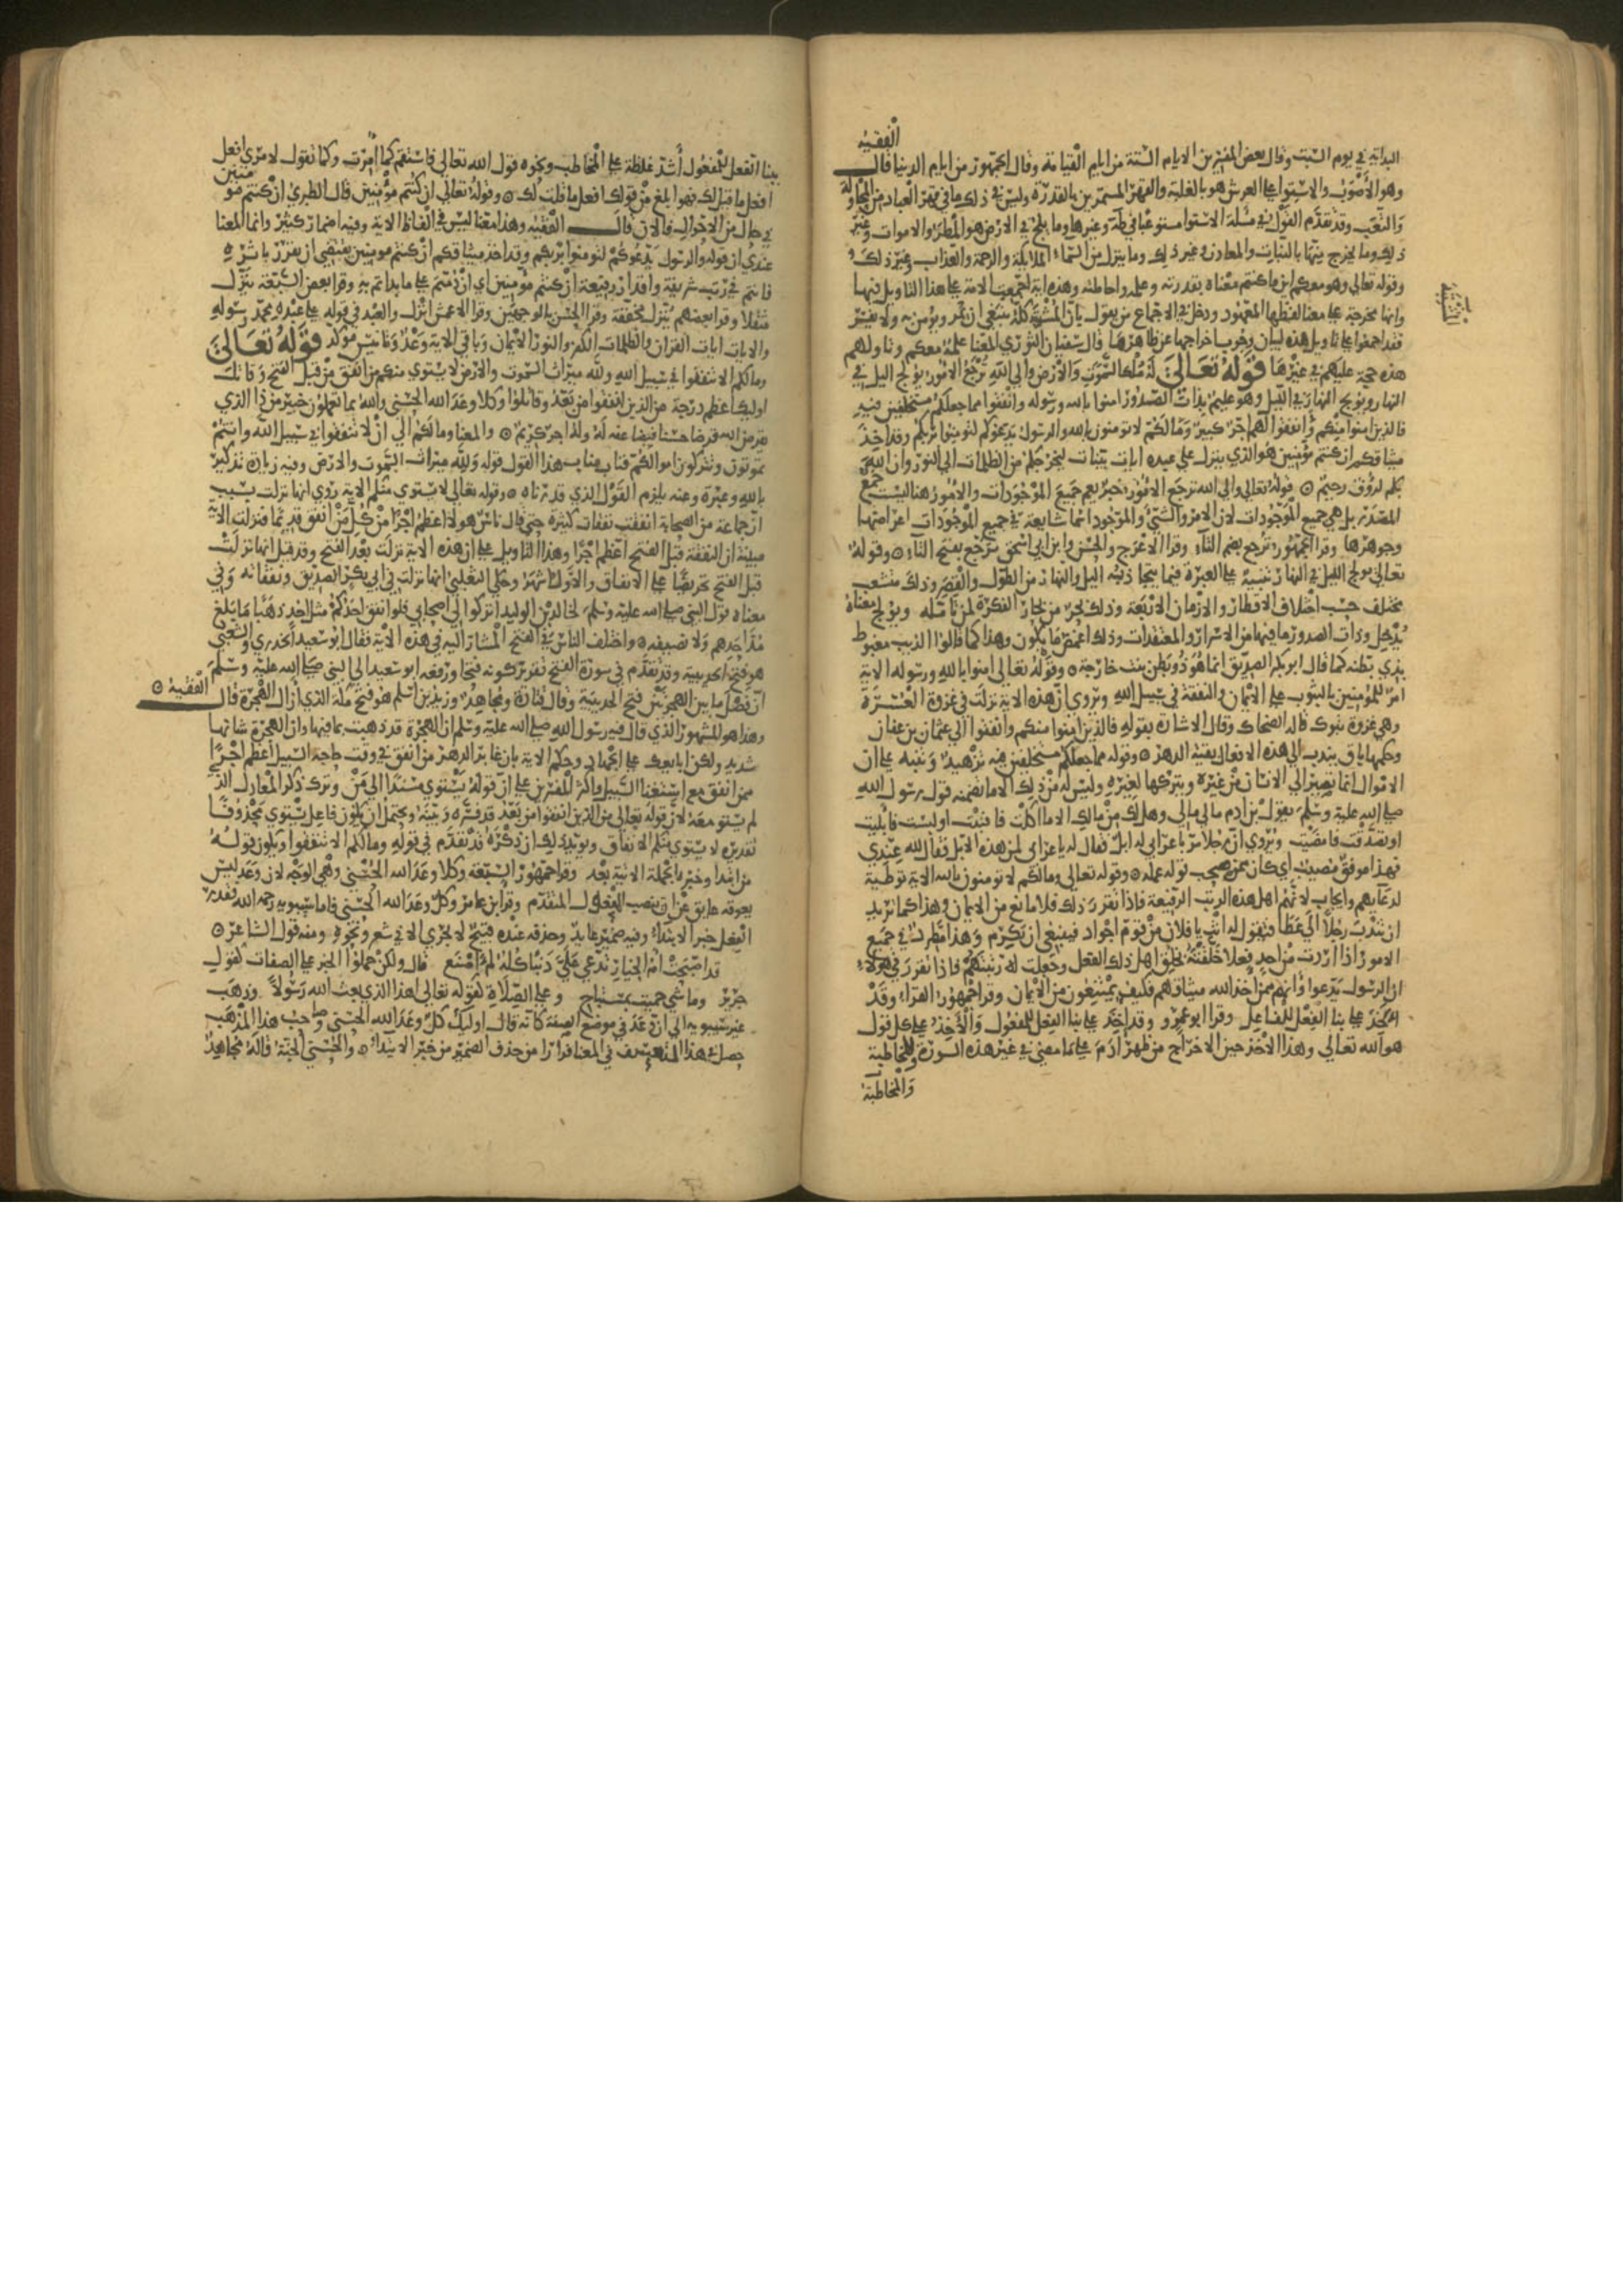 الفقيه
البداية في يوم السبت وقال بعض المفسرين الايام الستة من ايام القيامة وقال الجمهور من ايام الدنيا قال
وهو الأصوب والاستوا على العرش هو بالغلبة والقهر المستمرين بالقدرة وليس في ذلك ما في قهر العباد من المحاولة
والتعب وقد تقدم القول في مسلة الاستوا مستوعبا في طه وغيرها وما يلج في الارض هو المطر والاموات وغير
ذلك وما يخرج منها النبات والمعادن وغير ذلك وما ينزل من السماء الملايكة والرحمة والعذاب وغير ذلك
وقوله تعالى وهو معكم اين ما كنتم معناه بقدرته وعلمه واحاطته وهذه اية اجمعت الامة على هذا التاويل فيها
وانها مخرجة على معنا لفظها المعهود ودخل في الاجماع من يقول بان المشتبه كله ينبغي ان يمر ويؤمن به ولا يفسر
فقد اجمعوا على تاويل هذه لبيان وجوب اخراجها عن ظاهرها قال سفيان الثوري المعنا علمه معكم وتاولهم
هذه حجة عليهم في غيرها قوله تعالى له ملك السموت والارض والى الله ترجع الامور يولج اليل في
النهار ويولج النهار في اليل وهو عليم بذات الصدور امنوا بالله ورسوله وانفقوا مما جعلكم مستخلفين فيه
فالذين امنوا منكم وانفقوا لهم اجر كبير وما لكم لا تومنون بالله والرسول يدعوكم لتومنوا بربكم وقد اخذ
ميثاقكم ان كنتم مؤمنين هو الذي ينزل على عبده ايات بينات ليخرجكم من الظلمات الى النور وان الله
بكم لرؤف رحيم قوله تعالى والى الله ترجع الامور خبر يعم جميع الموجودات والامور هنا ليست جمع
المصدر بل هي جميع الموجودات لان الامر والشي والموجود اسما شايعة في جميع الموجودات اعراضها
وجوهرها وقرا الجمهور ترجع بضم التاء وقرا الاعرج والحسن وابن ابي اسحق ترجع بفتح التاء وقوله
تعالى يولج الليل في النهار تنبيه على العبرة فيما يتجاذبه اليل والنهار من الطول والقصر وذلك متشعب
مختلف حسب اختلاف الاقطار والازمان الاربعة وذلك بحر من بحار الفكرة لمن تامله ويولج معناه
يدخل وذات الصدور ما فيها من الاسرار والمعتقدات وذلك اغمض ما يكون وهذا كما قالوا الذيب مغبوط
بذي بطنه كما قال ابو بكر الصديق انما هو ذو بطن بنت خارجة وقوله تعالى امنوا بالله ورسوله الاية
امر للمومنين بالثبوت على الايمان والنفقة في سبيل الله ويروى ان هذه الاية نزلت في غزوة العسرة
وهي غزوة تبوك قاله الضحاك وقال الاشارة بقوله فالذين امنوا منكم وانفقوا الى عثمان بن عفان
وحكمها باق يندب الى هذه الافعال بقية الدهر وقوله مما جعلكم مستخلفين فيه تزهيد وتنبيه على ان
الاموال انما تصير الى الانسان من غيره ويتركها لغيره وليس له من ذلك الا ما تضمنه قول رسول الله
صلى الله عليه وسلم يقول بن ادم مالي مالي وهل لك من مالك الا ما اكلت فافنيت او لبست فابليت
او تصدقت فامضيت ويروى ان رجلا مر باعرابي له ابل فقال له يا عرابي لمن هذه الابل فقال لله عندي
فهذا موفق مصيب اي كان ممن صحب قوله عمله وقوله تعالى وما لكم لا تومنون بالله الاية توطية
لدعايهم وايجاب لانهم اهل هذه الرتب الرفيعة فاذا تقرر ذلك فلا مانع من الايمان وهذا كما تريد
ان تندب رجلا الى عطا فتقول له انت يا فلان من قوم اجواد فينبغي ان تكرم وهذا مطرد في جميع
الامور اذا اردت من احد فعلا خلقته بخلق اهل ذلك الفعل وجعلت له رتبتهم فاذا تقرر في هولاء
ان الرسول يدعوا وانهم ممن اخذ الله ميثاقهم فكيف يمتنعون من الايمان وقرا جمهور القراء وقد
اخذ على بنا الفعل للفاعل وقرا ابو عمرو وقد اخذ على بنا الفعل للمفعول والأخذ على كل قول
هو الله تعالى وهذا الاخذ حين الاخراج من ظهر ادم على ما مضى في غير هذه السورة والمخاطبة
والمخاطبة
ببنا الفعل للمفعول أشد غلظة على المخاطب ونحوه قول الله تعالى فاستقم كما امرت وكما تقول لامري افعل
افعل ما قيل لك فهو ابلغ من قولك افعل ما قلت لك وقوله تعالى ان كنتم مؤمنين قال الطبري ان كنتم مومنين
في حال من الاحوال فالان قال الفقيه وهذا معنا ليس في الفاظ الاية وفيه اضمار كثير وانما المعنا
عندي ان قوله والرسول يدعوكم لتومنوا بربكم وقد اخذ ميثاقكم ان كنتم مومنين يقتضي ان يقدر باثره
فانتم في رتب شريفة واقدار رفيعة ان كنتم مومنين اي ان دمتم على ما بداتم به وقرا بعض السبعة ينزل
مثقلا وقرا بعضهم ينزل مخففة وقرا الحسن بالوجهين وقرا الاعمش انزل والعبد في قوله على عبده محمد رسوله
والايات ايات القران والظلمات الكفر والنور الايمان وباقي الاية وعد وتانيس مؤكد قوله تعالى
وما لكم الا تنفقوا في سبيل الله ولله ميراث السموت والارض لا يستوي منكم من انفق من قبل الفتح وقاتل
اوليك اعظم درجة من الذين انفقوا من بعد وقاتلوا وكلا وعد الله الحسنى والله بما تعملون خبير من ذا الذي
يقرض الله قرضا حسنا فيضاعفه له وله اجر كريم والمعنا وما لكم الى ان لا تنفقوا في سبيل الله وانتم
تموتون وتتركون اموالكم فناب مناب هذا القول قوله ولله ميراث السموت والارض وفيه زيادة تذكير
بالله وعبرة وعنه يلزم القول الذي قدرناه وقوله تعالى لا يستوي منكم الاية روي انها نزلت بسبب
ان جماعة من الصحابة انفقت نفقات كثيرة حتى قال ناس هولاء اعظم اجرا من كل من انفق قديما فنزلت الاية
مبينة ان النفقة قبل الفتح اعظم اجرا وهذا التاويل على ان هذه الاية نزلت بعد الفتح وقد قيل انها نزلت
قبل الفتح تحريضا على الانفاق والاول اشهر وحكى الثعلبي انها نزلت في ابي بكر الصديق ونفقاته وفي
معناه قول النبي صلى الله عليه وسلم لخالد بن الوليد اتركوا الي اصحابي فلو انفق احدكم مثل احد ذهبا ما بلغ
مد احدهم ولا نصيفه واختلف الناس في الفتح المشار اليه في هذه الاية فقال ابو سعيد الخدري والشعبي
هو فتح الحديبية وقد تقدم في سورة الفتح تقرير كونه فتحا ورفعه ابو سعيد الى النبي صلى الله عليه وسلم
ان فضل ما بين الهجرتين فتح الحديبية وقال قتادة ومجاهد وزيد بن اسلم هو فتح مكة الذي ازال الهجرة قال الفقيه
وهذا هو المشهور الذي قال فيه رسول الله صلى الله عليه وسلم ان الهجرة قد ذهبت بما فيها وان الهجرة شانها
شديد ولكن ابايعك على الجهاد وحكم الاية باق غابر الدهر من انفق في وقت حاجة السبيل اعظم اجرا
ممن انفق مع استغنا السبيل واكثر المفسرين على ان قوله يستوي مسندا الى من وترك ذكر المعادل الذي
لم يستو معه لان قوله تعالى من الذين انفقوا من بعد قد فسره وبينه ويحتمل ان يكون فاعل يستوي محذوفا
تقديره لا يستوي منكم الانفاق ويويد ذلك ان ذكره قد تقدم في قوله وما لكم الا تنفقوا ويكون قوله
من ابتدا وخبره الجملة الاتية بعد وقرا جمهور السبعة وكلا وعد الله الحسنى وهي الوجه لان وعد ليس
يعوقه عايق عن ان ينصب المفعول المتقدم وقرا ابن عامر وكل وعد الله الحسنى فاما سيبويه رحمه الله فقدر
الفعل خبر الابتداء وفيه ضمير عايد وحذفه عنده قبيح لا يجري الا في شعر ونحوه ومنه قول الشاعر
قد اصبحت ام الخيار تدعي علي ذنبا كله لم اصنع قال ولكن حملوا الخبر على الصفات كقول
جرير وما شي حميت بمستباح وعلى الصلات كقوله تعالى اهذا الذي بعث الله رسولا وذهب
غير سيبويه الى ان وعد في موضع الصفة كانه قال اوليك كل وعد الله الحسنى وصاحب هذا المذهب
حصل في هذا التعسف في المعنا فرارا من حذف الضمير من خبر الابتداء والحسنى الجنة قاله مجاهد